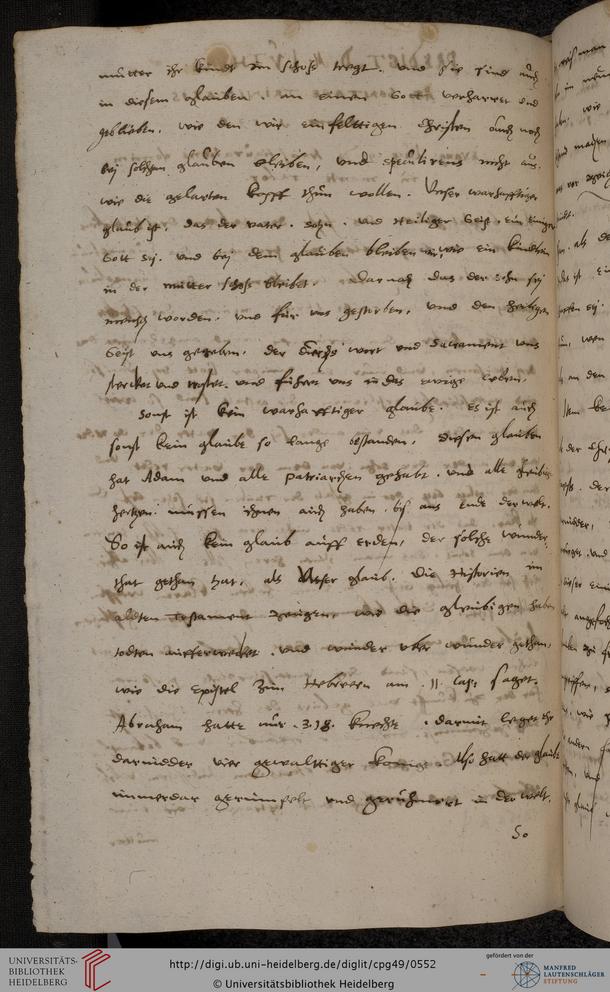 mutter ihr kindt im schoss tregt. und sie sind auch
in diesem glauben. an einen Gott verharret und
geblieben. wie den wir einfelttigen Christen auch noch
bej solchem glauben bleiben, und speculirens nicht aus.
wie die gelarten kopff thun wollen. Unser warhafftiger
glaub ist, das der vater. sohn. und Heiliger Geist. ein einiger
Gott sej. und bej dem glauben bleiben wir, wie ein kindlein
in der mutter schoss bleibet. Darnach das der sohn sej
mensch worden. und für uns gestorben, und den heiligen
Geist uns gegeben. der durchs wort und Sacrament uns
stercket und tröstet. und füheret uns in das ewige leben.
Sonst ist kein warhafftiger glaube. Es ist auch
sonst kein glaube so lange bestanden. diesen glauben
hat Adam und alle patriarchen gehabt. und alle
hertzen müssen ihnen auch haben. bis ans Ende der welt.
So ist auch kein glaub auff erden, der solche wunder
that gethan hat, als Unser glaub. Die Historien im
alldten Testament zeigen, wie die gleubigen haben
todten aufferwecket. und wunder uber wunder gethan,
wie die Epistel zun Hebreern am .11. Cap. saget.
Abraham hatte nur .318. knechte. darmit leget ehr
darnidder vier gewalttiger konige. Also hatt der glaube
immerdar gerumpelt und geruhmort in der welt.
So
UNIVERSITÄTS-
BIBLIOTHEK
HEIDELBERG
http://digi.ub.uni-heidelberg.de/diglit/cpg49/0552
© Universitätsbibliothek Heidelberg
gefördert von der
MANFRED
LAUTENSCHLÄGER
STIFTUNG